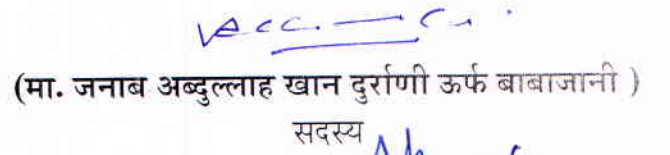 (मा. जनाब अब्दुल्लाह खान दुर्राणी ऊर्फ बाबाजानी )
सदस्य